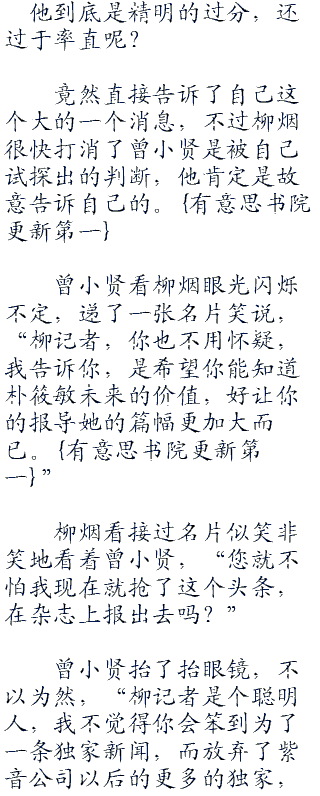 他到底是精明的过分，还
过于率直呢？
竟然直接告诉了自己这
个大的一个消息，不过柳烟
很快打消了曾小贤是被自己
试探出的判断，他肯定是故
意告诉自己的。{有意思书院
更新第一}
曾小贤看柳烟眼光闪烁
不定，递了一张名片笑说，
“柳记者，你也不用怀疑，
我告诉你，是希望你能知道
朴筱敏未来的价值，好让你
的报导她的篇幅更加大而
已。{有意思书院更新第
一}”
柳烟看接过名片似笑非
笑地看着曾小贤，“您就不
怕我现在就抢了这个头条，
在杂志上报出去吗？”
曾小贤抬了抬眼镜，不
以为然，“柳记者是个聪明
人，我不觉得你会笨到为了
一条独家新闻，而放弃了紫
音公司以后的更多的独家，